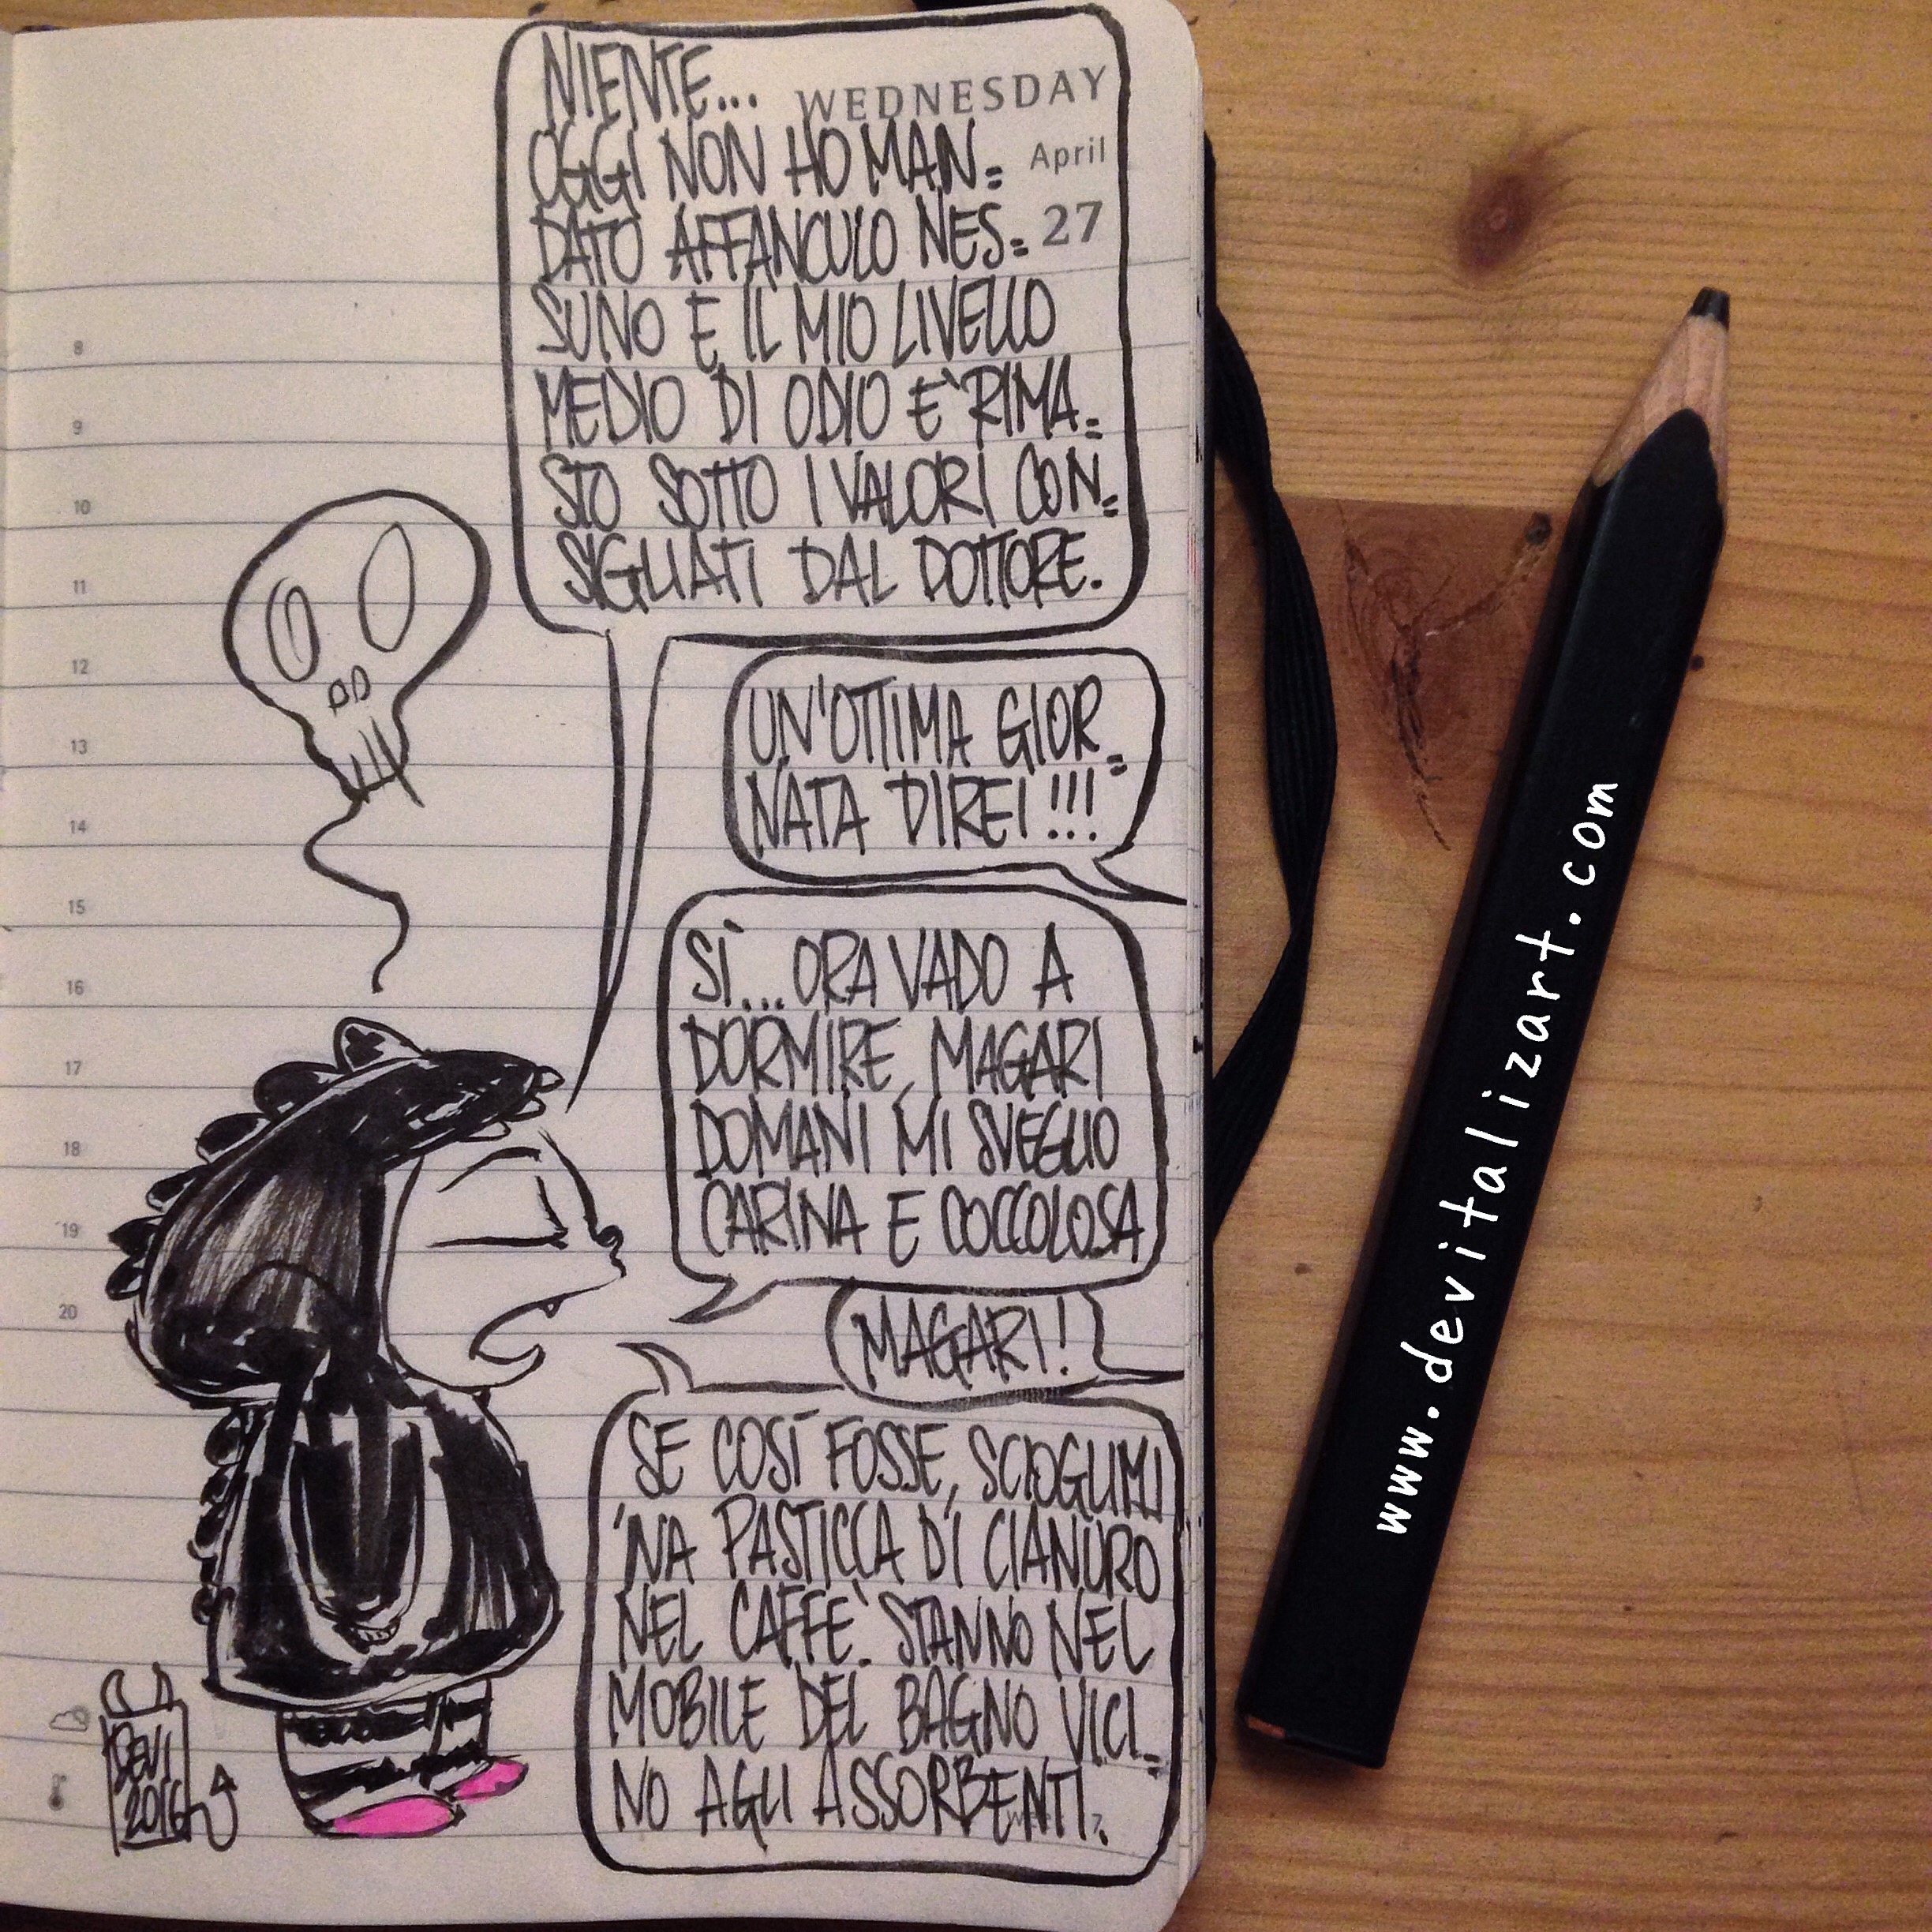 NIENTE...
WEDNESDAY
OGGI NON HO MAN=
April
DATO AFFANCULO NES=
27
SUNO E IL MIO LIVELLO
MEDIO DI ODIO E' RIMA=
STO SOTTO I VALORI CON=
SIGLIATI DAL DOTTORE.
UN'OTTIMA GIOR=
NATA DIREI!!!
SÌ... ORA VADO A
DORMIRE, MAGARI
DOMANI MI SVEGLIO
CARINA E COCCOLOSA
MAGARI!
SE COSÌ FOSSE, SCIOGLIMI
'NA PASTICCA DI CIANURO
NEL CAFFE'. STANNO NEL
MOBILE DEL BAGNO VICI=
NO AGLI ASSORBENTI.
8
9
10
11
12
13
14
15
16
17
18
19
20
DEVI
2016
www.devitalizart.com